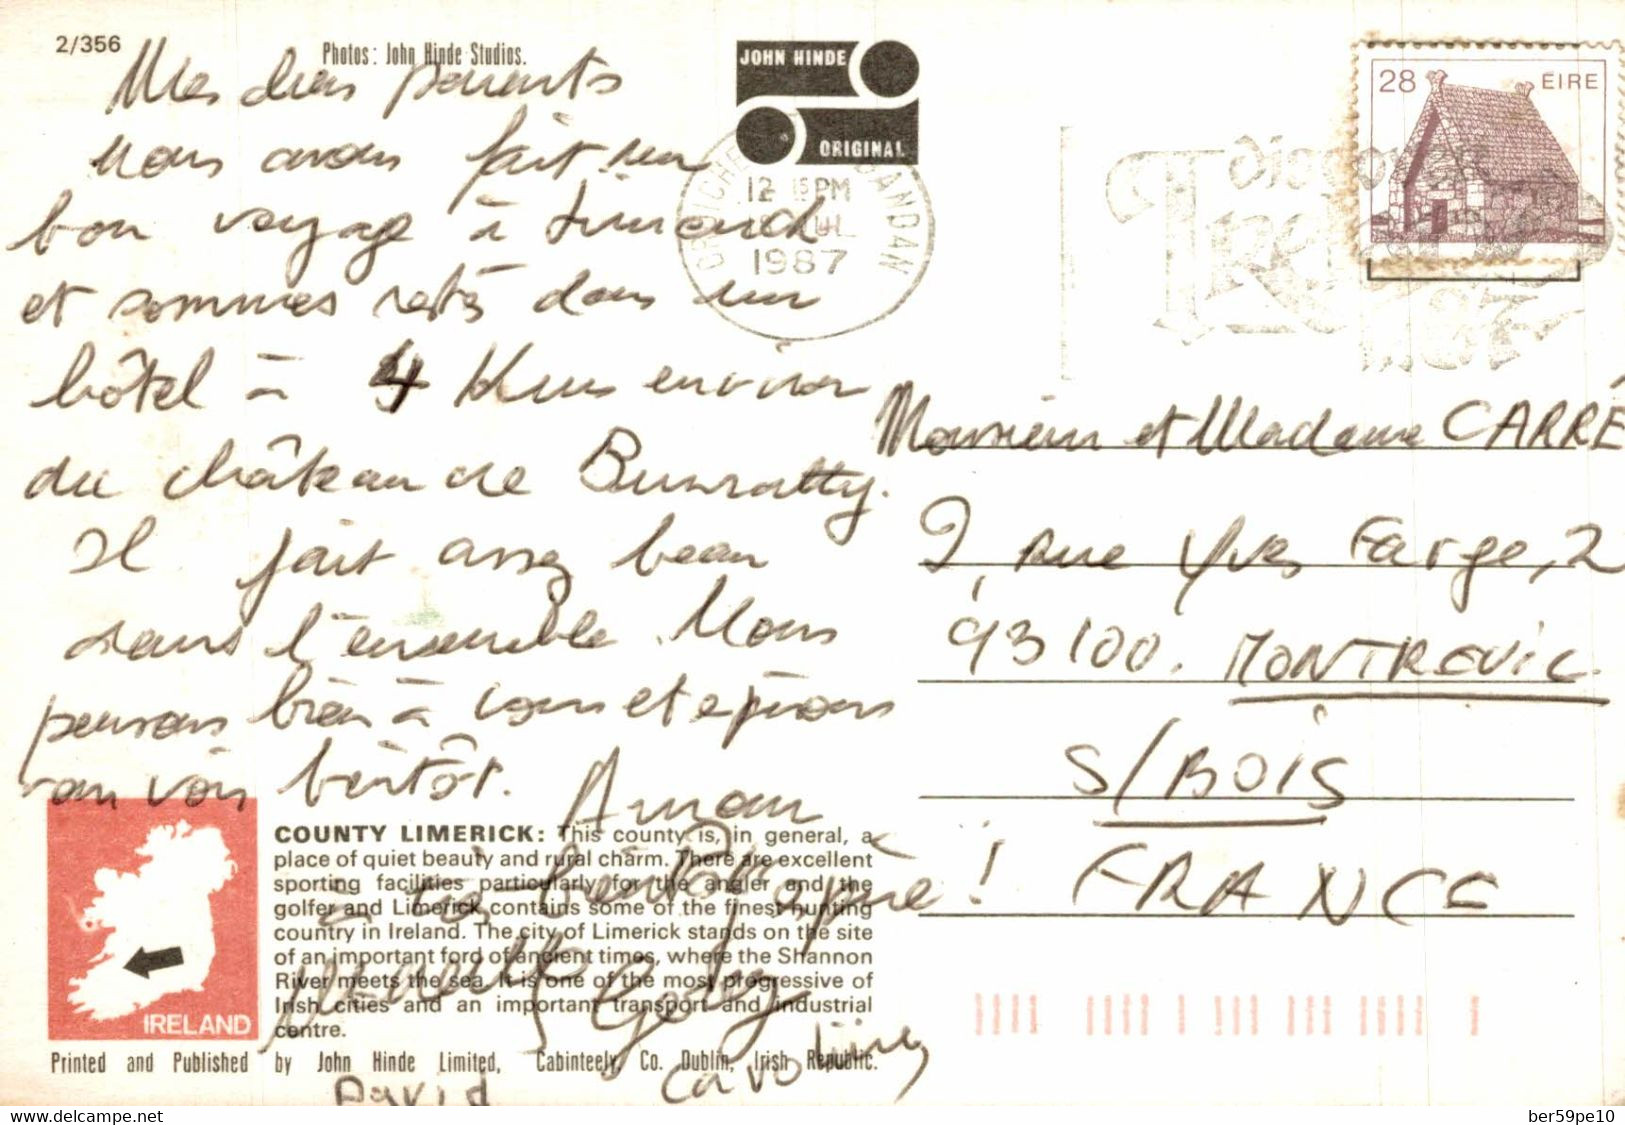 2/356
Photos: John Hinde Studios.
JOHN HINDE
ORIGINAL
28 ÉIRE
12 15PM
JUL
1987
Mes chers parents
Nous avons fait un
bon voyage à Limerick
et sommes restés dans un
hôtel à 4 kms environ
du château de Bunratty.
Il fait assez beau
dans l'ensemble. Nous
pensons bien à vous et espérons
vous voir bientôt.
à très bientôt
Monsieur et Madame CARRÉ
2, rue Yves Farge, 2
93100. MONTREUIL
S/BOIS
FRANCE
COUNTY LIMERICK: This county is, in general, a
place of quiet beauty and rural charm. There are excellent
sporting facilities particularly for the angler and the
golfer and Limerick contains some of the finest hunting
country in Ireland. The city of Limerick stands on the site
of an important ford of ancient times, where the Shannon
River meets the sea. It is one of the most progressive of
Irish cities and an important transport and industrial
centre.
IRELAND
Printed and Published by John Hinde Limited, Cabinteely, Co. Dublin, Irish Republic.
David
delcampe.net
ber59pe10